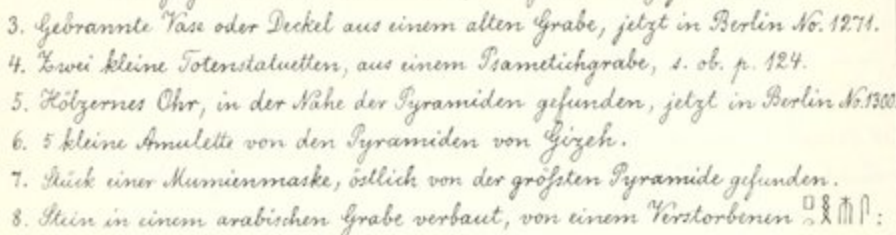 3. Gebrannte Vase oder Deckel aus einem alten Grabe, jetzt in Berlin No. 1271.
4. Zwei kleine Totenstatuetten, aus einem Psametichgrabe, s. ob. p. 124.
5. Hölzernes Ohr, in der Nähe der Pyramiden gefunden, jetzt in Berlin No. 1300
6. 5 kleine Amulette von den Pyramiden von Gizeh.
7. Stück einer Mumienmaske, östlich von der größten Pyramide gefunden.
8. Stein in einem arabischen Grabe verbaut, von einem Verstorbenen :